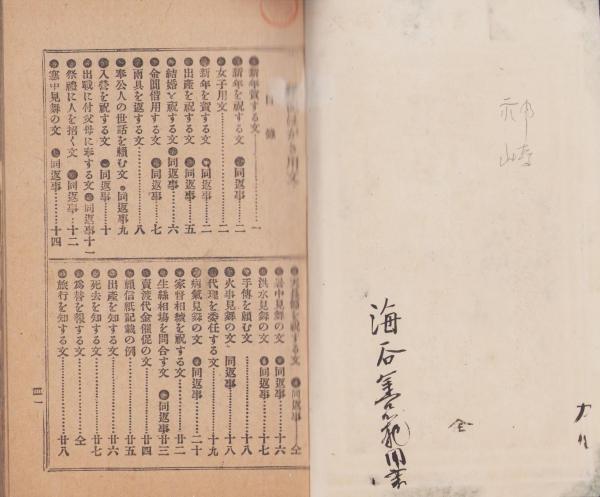 はがき用文
目錄
新年賀する文……一
新年を祝する文 同返事……二
女子用文……二
新年を賀する文 同返事……二
出產を祝する文 同返事……五
結婚を祝する文 同返事……六
金圓借用する文 同返事……七
雨具を返す文……八
奉公人の世話を賴む文 同返事 九
入營を祝する文 同返事……十
出戰に付父母に奉する文 同返事 十一
祭禮に人を招く文 同返事…十二
寒中見舞の文 同返事……十四
を祝する文 同返事……仝
暑中見舞の文 同返事……十六
洪水見舞の文 同返事……十七
手傳を賴む文……十八
火事見舞の文 同返事……十八
代理を委任する文……十九
病氣見舞の文 同返事……二十
家督相續を祝する文……廿二
生絲相塲を問合す文 同返事 廿三
賣渡代金催促の文……廿四
願信紙記載の例……廿五
出產を知する文……廿六
死去を知する文……廿七
爲替を報する文……仝
旅行を知する文……廿八
目一
神崎
海谷善
用
全